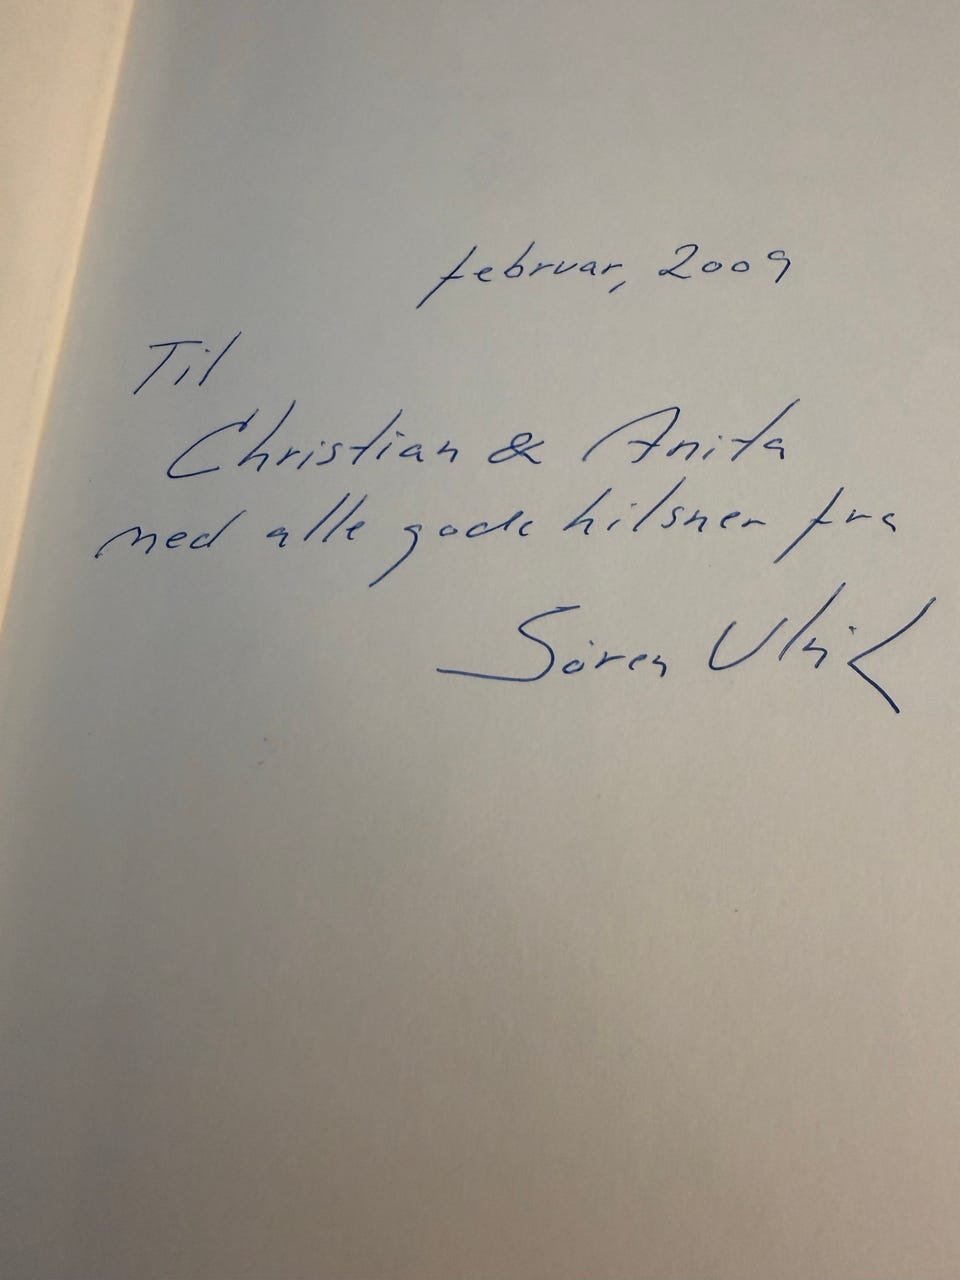 februar, 2009
Til
Christian & Anita
med alle gode hilsner fra
Søren Ulrik